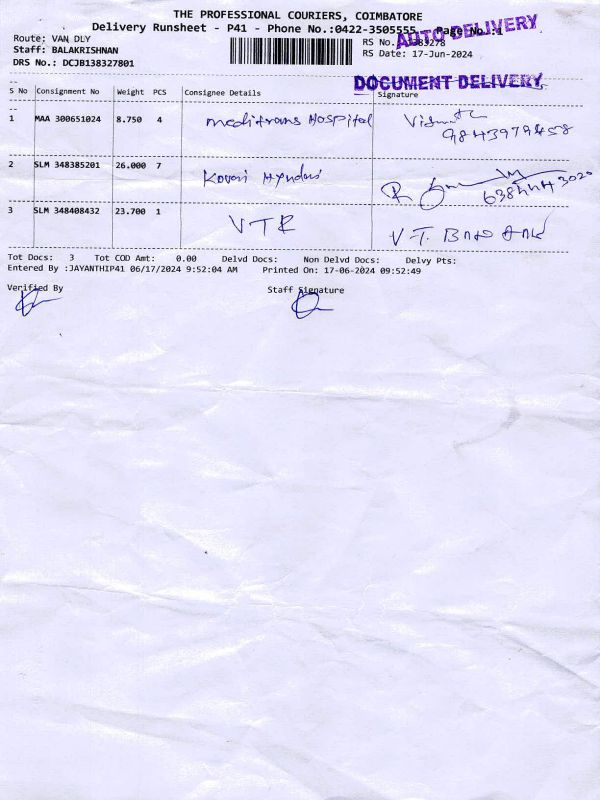 THE PROFESSIONAL COURIERS, COIMBATORE
Delivery Runsheet - P41 - Phone No.:0422-3505555 Page No.:1
AUTO DELIVERY
Route: VAN DLY
RS No.
Staff: BALAKRISHNAN
RS Date: 17-Jun-2024
DRS No.: DCJB138327801
DOCUMENT DELIVERY
S No Consignment No Weight PCS Consignee Details Signature
1 MAA 300651024 8.750 4 Meditrans Hospital
2 SLM 348385201 26.000 7
3 SLM 348408432 23.700 1 VTR V.T.
Tot Docs: 3 Tot COD Amt: 0.00 Delvd Docs: Non Delvd Docs: Delvy Pts:
Entered By :JAYANTHIP41 06/17/2024 9:52:04 AM Printed On: 17-06-2024 09:52:49
Verified By Staff Signature